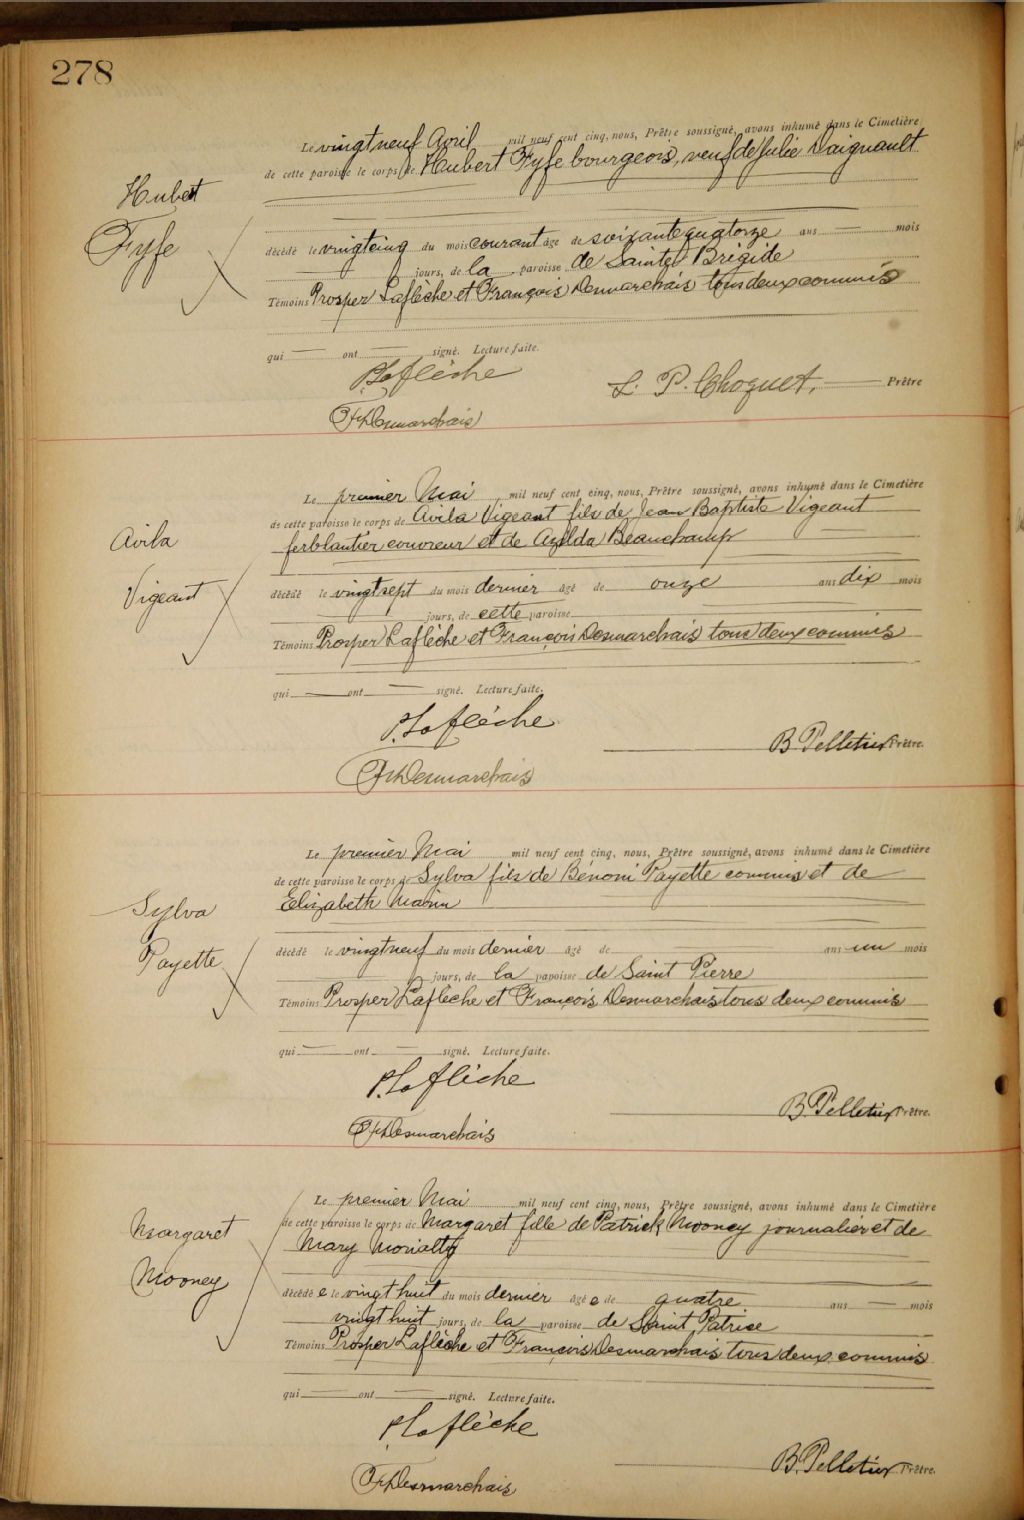 278
Le vingt neuf Avril mil neuf cent cinq, nous, Prêtre soussigné, avons inhumé dans le Cimetière
de cette paroisse le corps de Hubert Fyfe bourgeois, veuf de Julie Daignault
Hubert
Fyfe
décédé le vingt cinq du mois courant âgé de soixante quatorze ans — mois
jours, de la paroisse de Sainte Brigide
Témoins Prosper Laflèche et François Desmarchais tous deux commis
qui — ont — signé. Lecture faite.
P. Laflèche
L. P. Choquet, Prêtre
F. Desmarchais
Le premier Mai mil neuf cent cinq, nous, Prêtre soussigné, avons inhumé dans le Cimetière
de cette paroisse le corps de Avila Vigeant fils de Jean Baptiste Vigeant
Avila
ferblantier couvreur et de Azilda Beauchamp
Vigeant
décédé le vingt sept du mois dernier âgé de onze ans dix mois
jours, de cette paroisse
Témoins Prosper Laflèche et François Desmarchais tous deux commis
qui — ont — signé. Lecture faite.
P. Laflèche
B. Pelletier Prêtre.
F. Desmarchais
Le premier Mai mil neuf cent cinq, nous, Prêtre soussigné, avons inhumé dans le Cimetière
de cette paroisse le corps de Sylva fils de Bénoni Payette commis et de
Sylva
Elizabeth
Payette
décédé le vingt neuf du mois dernier âgé de ans un mois
jours, de la paroisse de Saint Pierre
Témoins Prosper Laflèche et François Desmarchais tous deux commis
qui — ont — signé. Lecture faite.
P. Laflèche
B. Pelletier Prêtre.
F. Desmarchais
Le premier Mai mil neuf cent cinq, nous, Prêtre soussigné, avons inhumé dans le Cimetière
de cette paroisse le corps de Margaret fille de Patrick Mooney journalier et de
Margaret
Mary
Mooney
décédée le vingt huit du mois dernier âgée de quatre ans — mois
vingt huit jours, de la paroisse de Saint Patrice
Témoins Prosper Laflèche et François Desmarchais tous deux commis
qui — ont — signé. Lecture faite.
P. Laflèche
B. Pelletier Prêtre.
F. Desmarchais